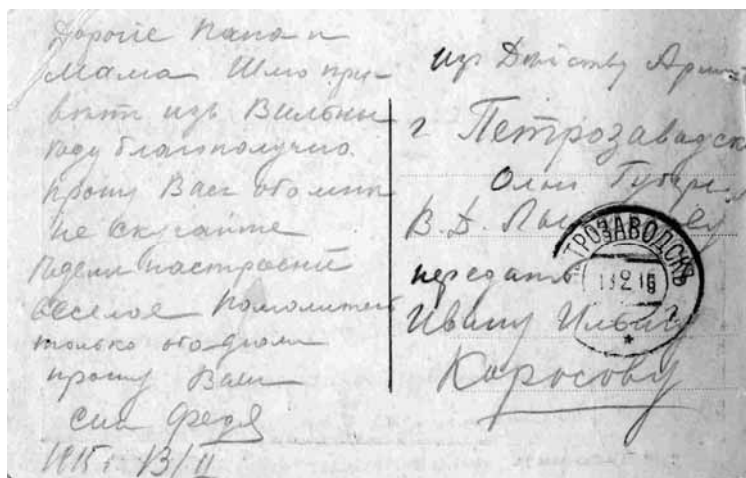 Дорогіе Папа и
Мама Шлю при-
ветъ изъ Вильны
Еду благополучно.
прошу Васъ обо мне
не скучайте
настроеніе
веселое Помолитесь
только
прошу Васъ
сын Федя
1915 г. 13/II
изъ Действ Арміи
г Петрозаводск
Олон Губерн
В. Д.
передать
Ивану Ильичу
Коросову
ТРОЗАВОДСКЪ